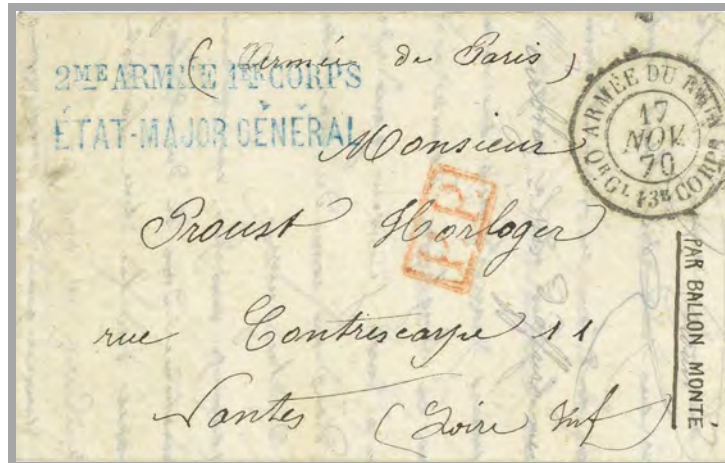 (Armée de Paris)
2ME ARMÉE 1ER CORPS
ÉTAT-MAJOR GÉNÉRAL
ARMÉE DU RHIN
17
NOV.
70
QR GL 13E CORPS
Monsieur
Proust Horloger
P.P.
rue Contrescarpe 11
Nantes (Loire Inf)
PAR BALLON MONTÉ